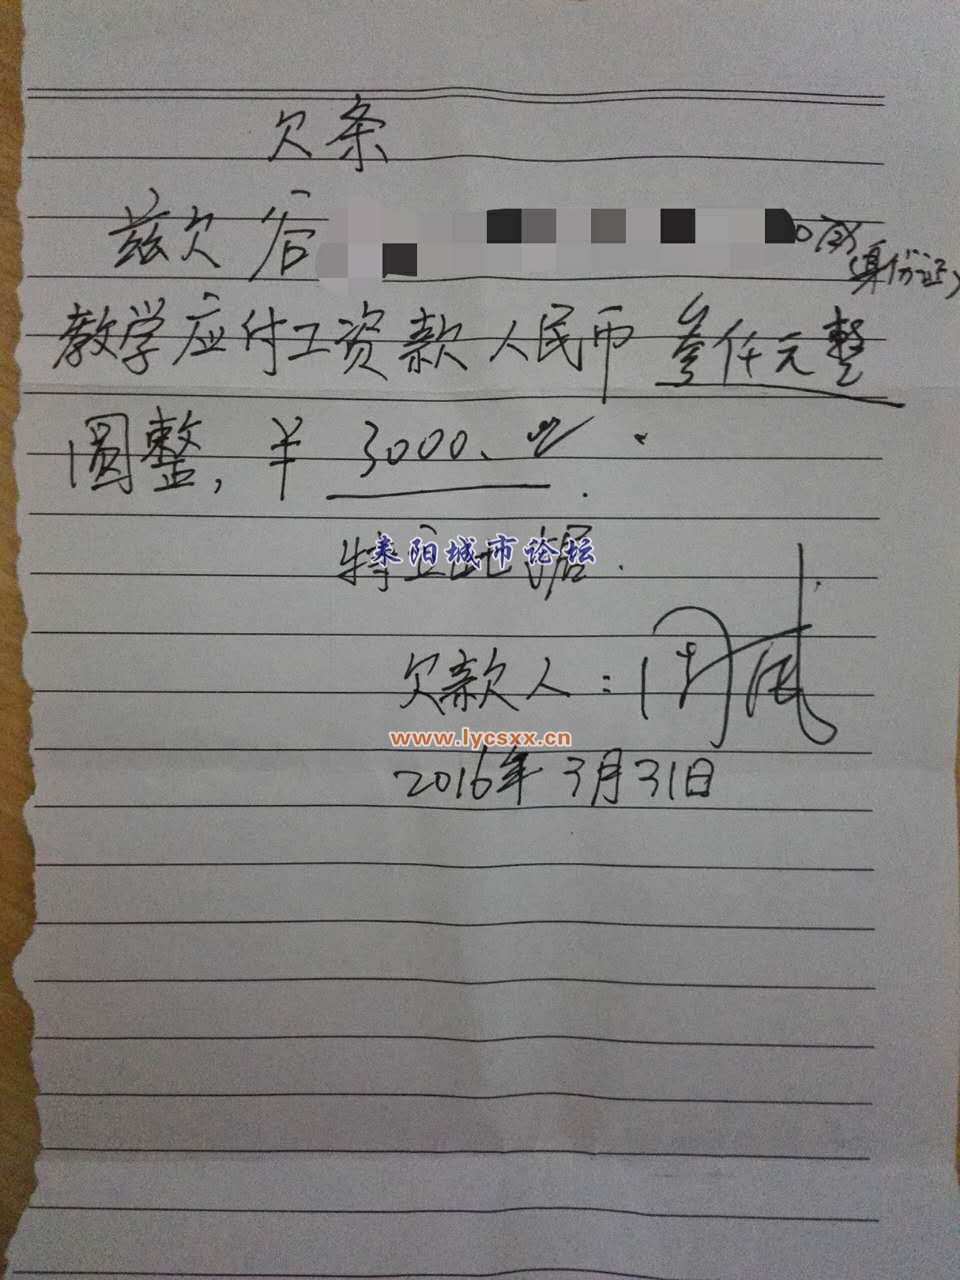 欠条
兹欠 谷
(身份证)
教学应付工资款 人民币 叁仟元整
圆整, ¥ 3000.
耒阳城市论坛
特立此据.
欠款人:周
www.lycsxx.cn
2016年 3月31日